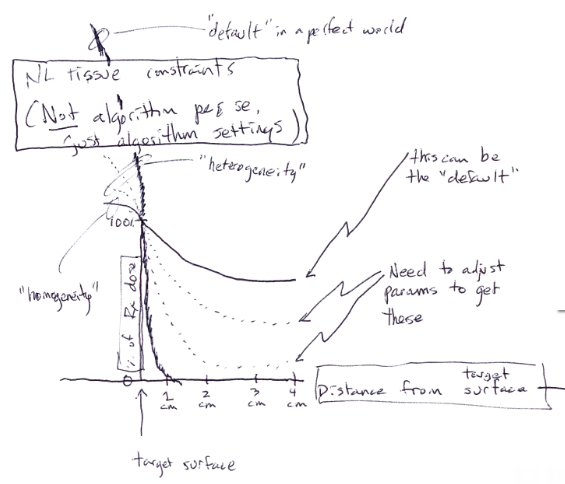 "default" in a perfect world
NL tissue constraints
(Not algorithm per se,
just algorithm settings)
"heterogeneity"
this can be
the "default"
100%
"homogeneity"
% of Rx dose
Need to adjust
params to get
these
0
1
cm
2
cm
3
cm
4
cm
Distance from target
surface
target surface